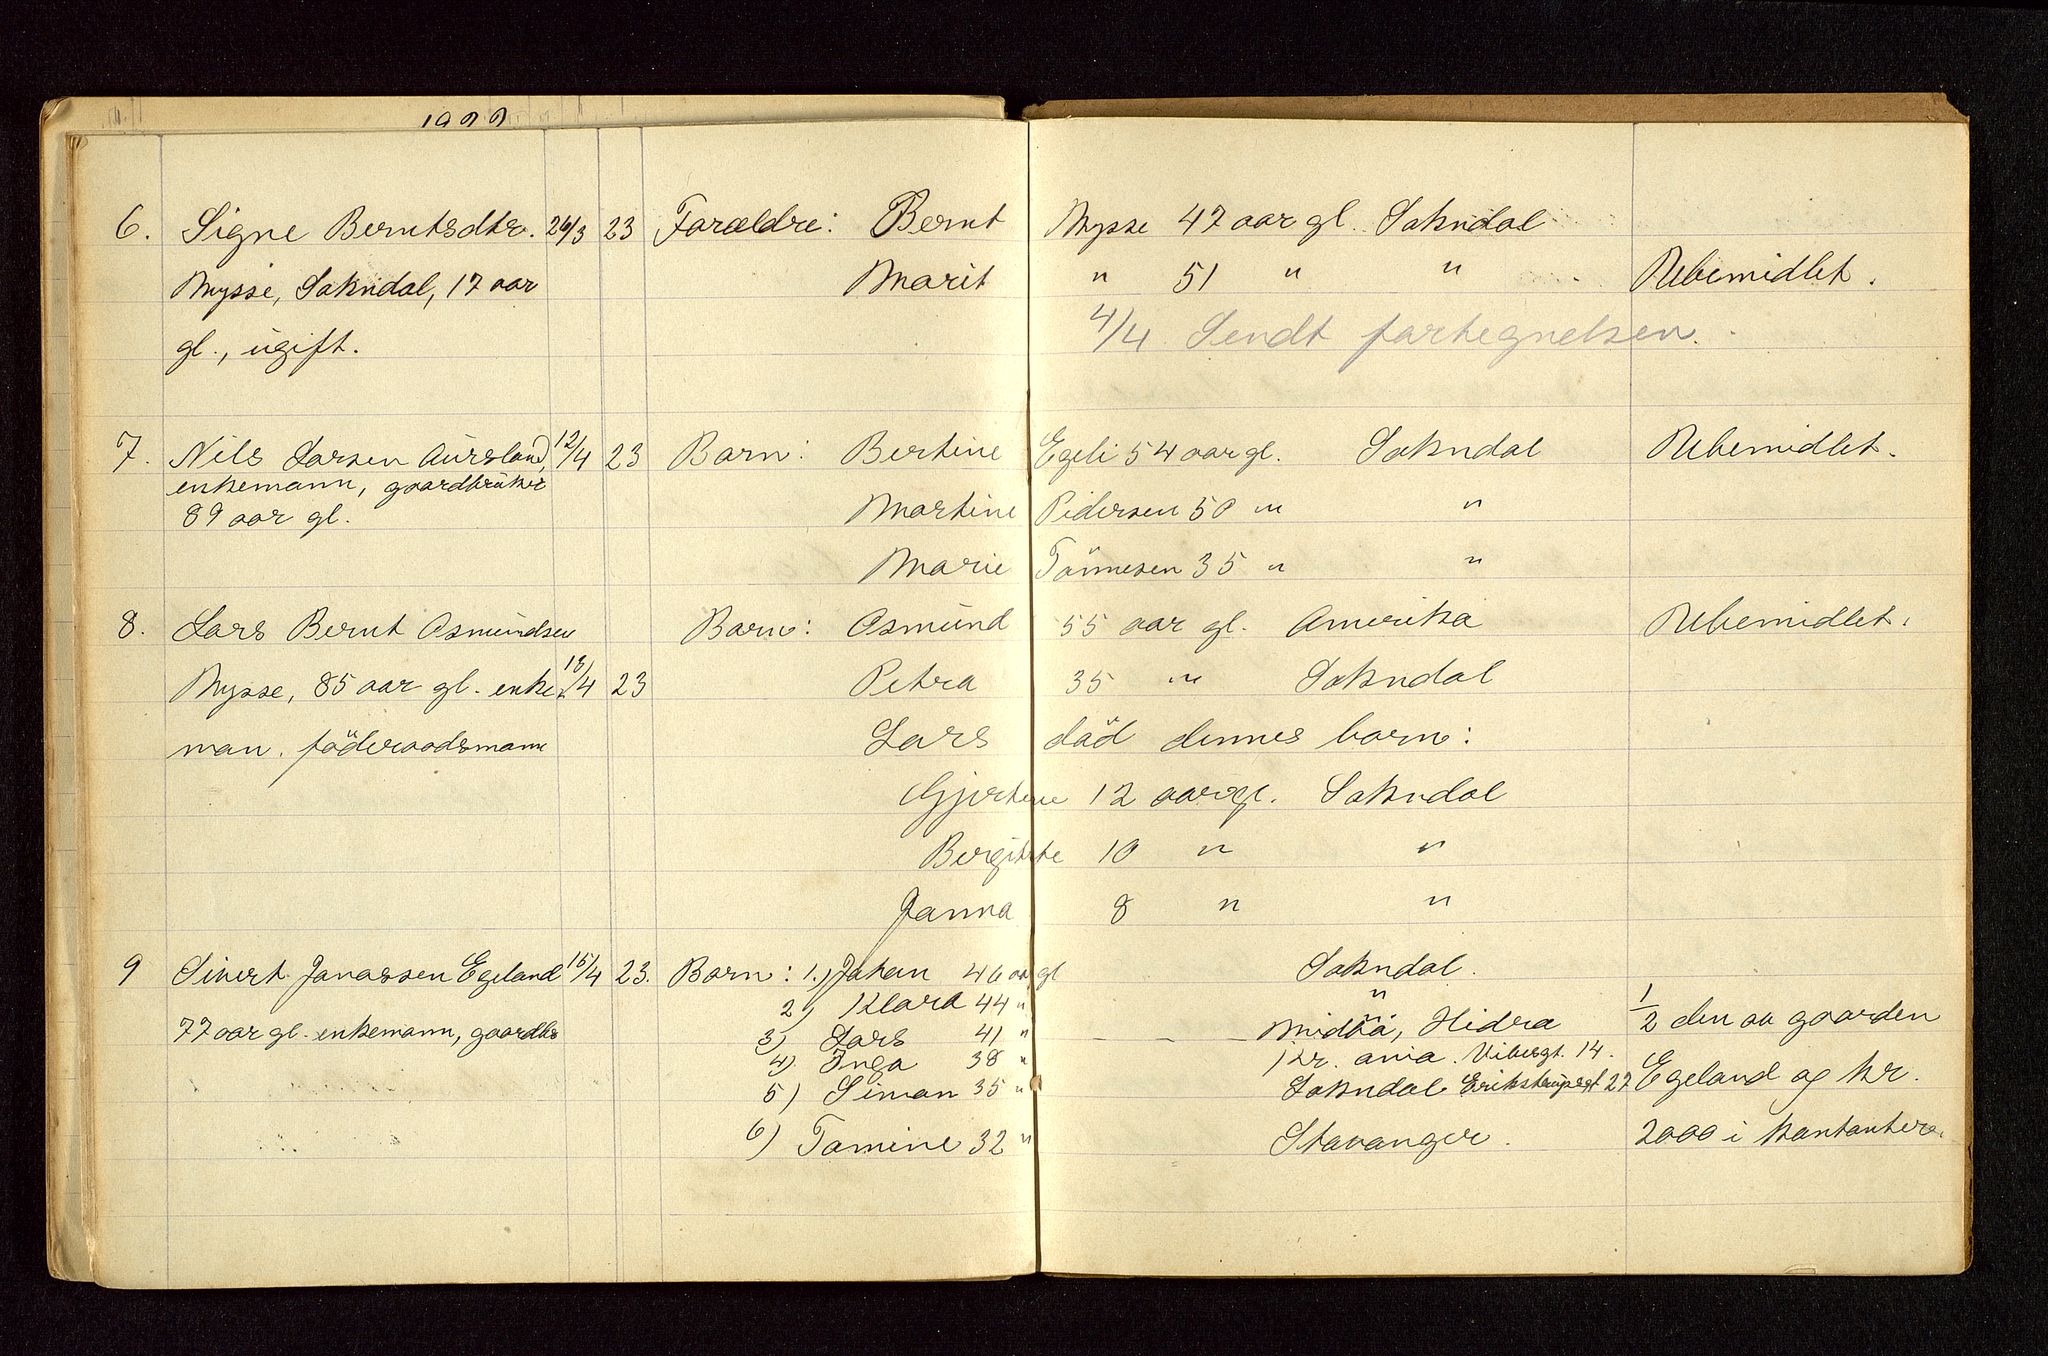 6. Signe Berntsdtr. 26/3 23 Forældre: Bernt Mysse 47 aar gl. Sokndal
Mysse, Sokndal, 17 aar Marit " 51 " " Ubemidlet.
gl., ugift. 4/4 Sendt fortegnelsen.
7. Nils Larsen Aursland, 12/4 23 Barn: Bertine Egeli 54 aar gl. Sokndal Ubemidlet.
enkemann, gaardbruker
89 aar gl. Martine Pedersen 50 " "
Marie Tönnesen 35 " "
8. Lars Bernt Osmundsen Barn: Osmund 55 aar gl. Amerika Ubemidlet.
Mysse, 85 aar gl. enke 13/4 23 Petra 35 " Sokndal
man. föderaadsmann Lars död dennes barn:
Gjertine 12 aar gl. Sokndal
Bergitte 10 " "
Janna 8 " "
9 Sivert Jonassen Egeland 15/4 23. Barn: 1.) Johan 46 aar gl Sokndal.
2) Klara 44 " "
77 aar gl. enkemann, gaardbr 3) Lars 41 " Midbö, Hidra 1/2 den av gaarden
4) Inga 38 " Kr. ania. Vibesgt. 14.
5) Simon 35 " Sokndal Erikstrupsgt 27 Egeland og kr.
6) Tomine 32 " Stavanger. 2000 i kontanter.